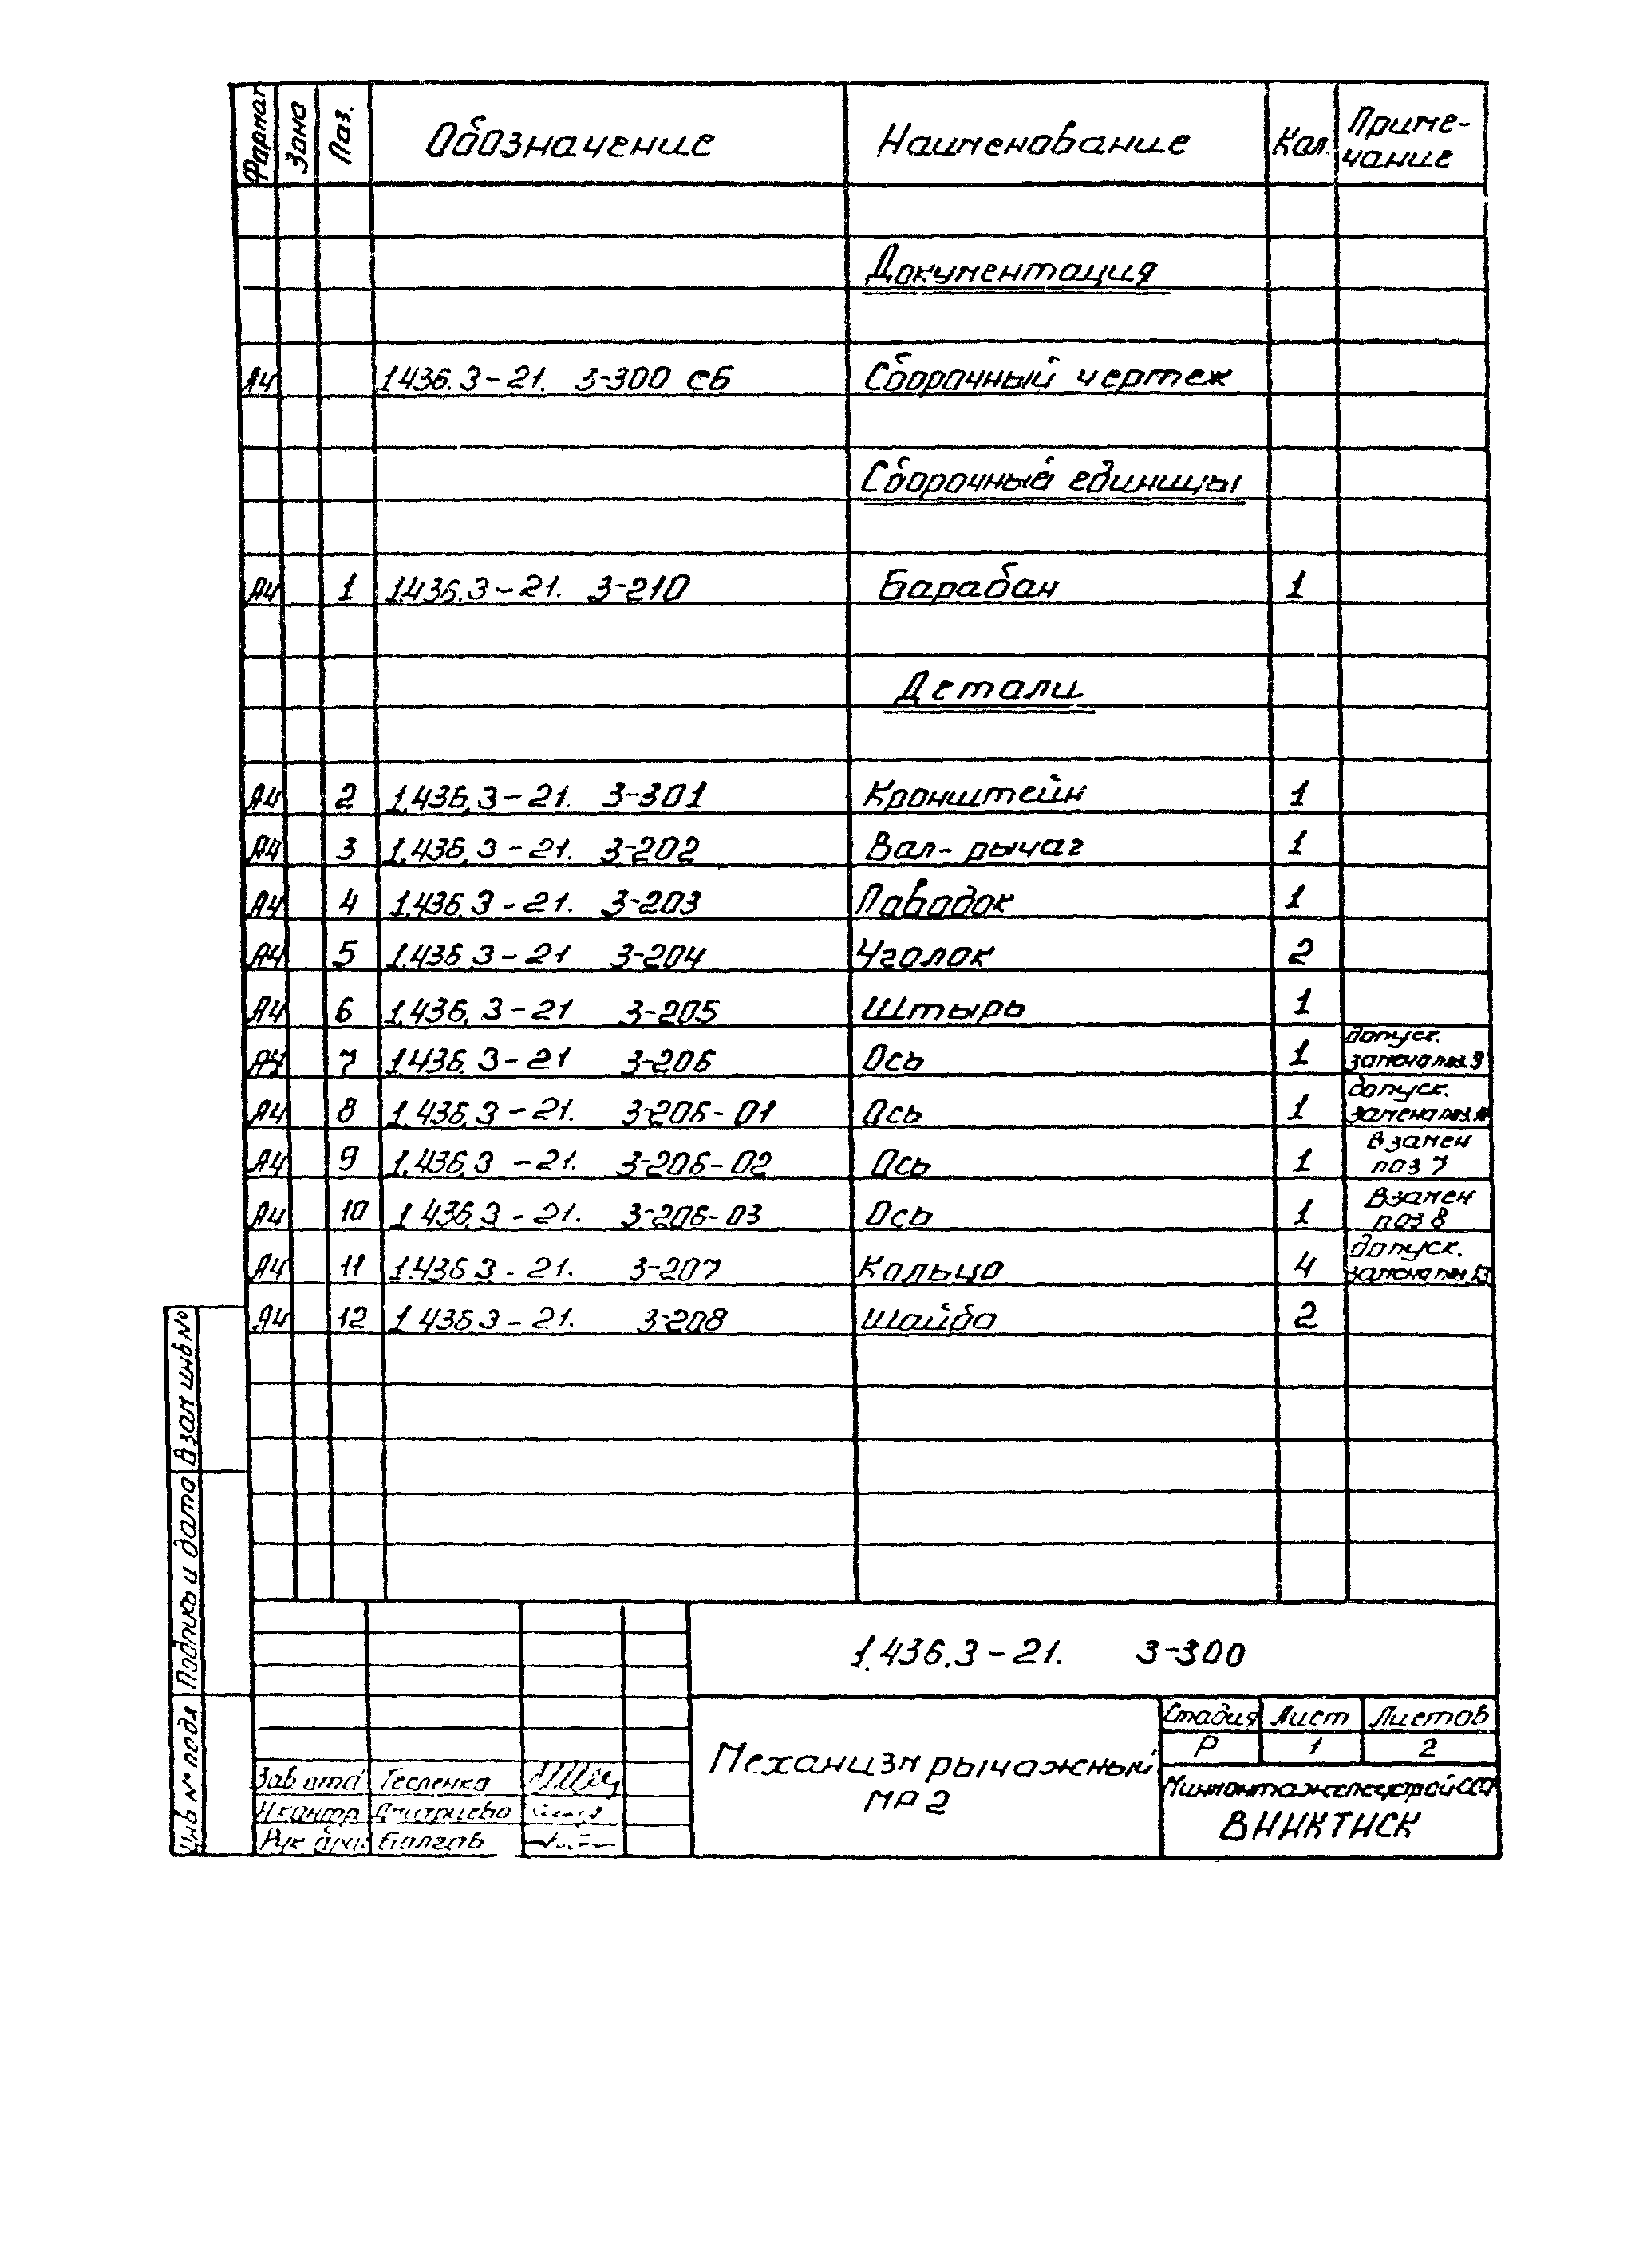 Формат Зона Поз. Обозначение Наименование Кол. Приме-
чание
Документация
А4 1.436.3-21. 3-300 СБ Сборочный чертеж
Сборочные единицы
А4 1 1.436.3-21. 3-210 Барабан 1
Детали
А4 2 1.436.3-21. 3-301 Кронштейн 1
А4 3 1.436.3-21. 3-202 Вал-рычаг 1
А4 4 1.436.3-21. 3-203 Поводок 1
А4 5 1.436.3-21 3-204 Уголок 2
А4 6 1.436.3-21 3-205 Штырь 1
А4 7 1.436.3-21 3-206 Ось 1 допуск.
замена поз. 9
А4 8 1.436.3-21. 3-206-01 Ось 1 допуск.
замена поз. 10
А4 9 1.436.3-21. 3-206-02 Ось 1 Взамен
поз 7
А4 10 1.436.3-21. 3-206-03 Ось 1 Взамен
поз 8
А4 11 1.436.3-21. 3-207 Кольцо 4 допуск.
замена поз. 13
А4 12 1.436.3-21. 3-208 Шайба 2
Взам инв №
Подпись и дата
Инв № подл
1.436.3-21. 3-300
Механизм рычажный
МР 2
Стадия Лист Листов
Р 1 2
Минмонтажспецстрой СССР
ВНИКТИСК
Зав отд Тесленко
Н контр Дмитриева
Рук